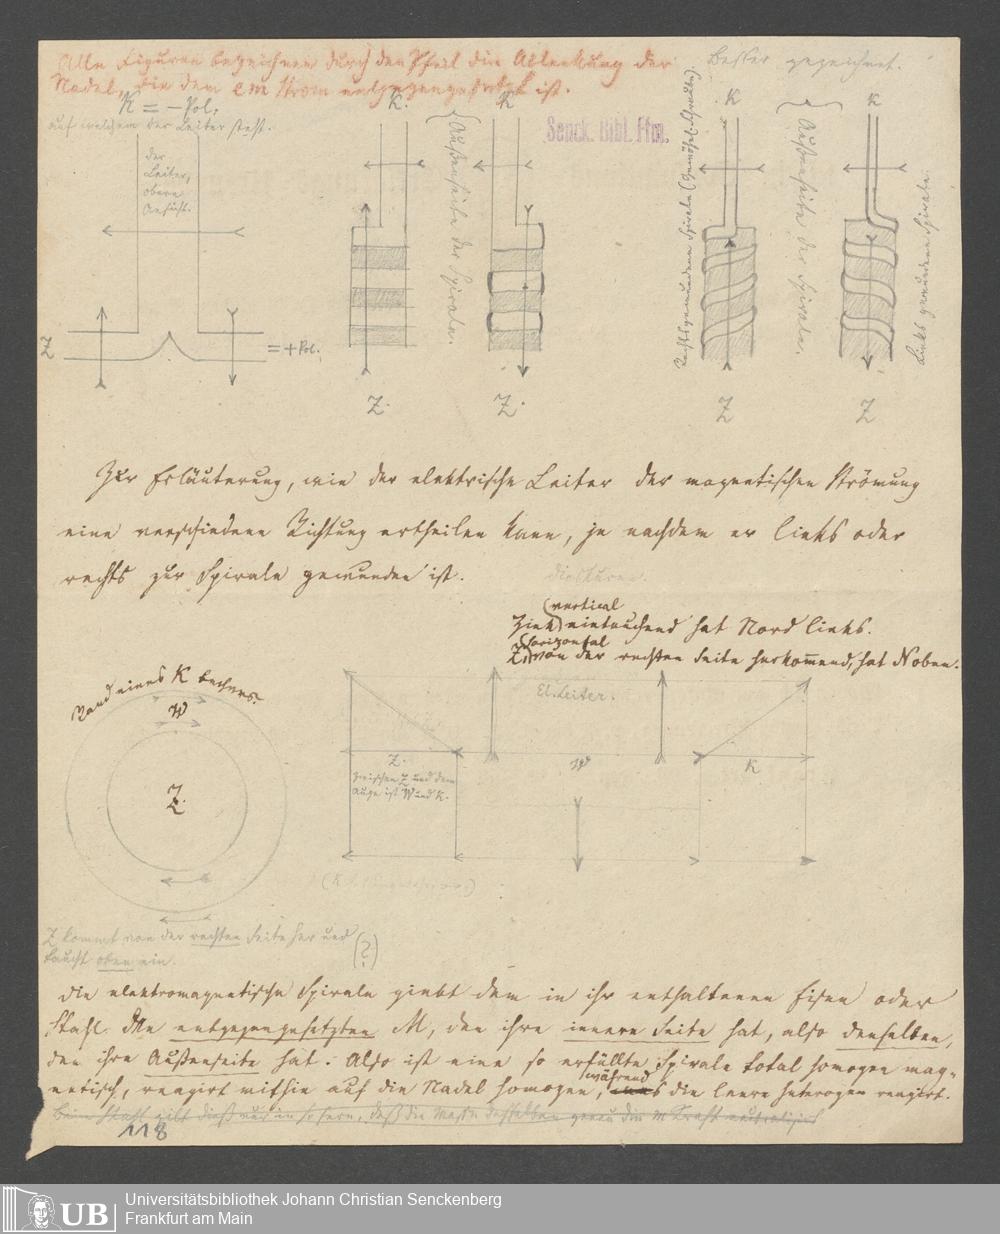 Alle Figuren bezeichnen durch den Pfeil die Ablenkung der
Nadel, die dem em Strom entgegengesetzt ist.
Besser gezeichnet.
K = -Pol,
auf welchem der Leiter steht.
der
Leiter,
obere
Ansicht.
Z
= + Pol.
K.
Außenseite der Spirale.
K
Z.
Z.
Senck. Bibl. Ffm.
Rechtsgewundene Spirale
K
Außenseite der Spirale.
K
Links gewundene Spirale.
Z
Z
Zur Erläuterung, wie der elektrische Leiter der magnetischen Strömung
eine verschiedene Richtung ertheilen kann, je nachdem er links oder
rechts zur Spirale gewunden ist.
vertical
Zink eintauchend hat Nord links.
horizontal
Z. von der rechten Seite herkommend, hat N oben.
Wand eines K Bechers.
W
Z.
El. Leiter.
Z.
W
K
zwischen Z und dem
Auge ist W und K.
Z kommt von der rechten Seite her und
taucht oben ein.
(?)
Die elektromagnetische Spirale giebt dem in ihr enthaltenen Eisen oder
Stahl den entgegengesetzten M, den ihre innere Seite hat, also denselben,
den ihre Außenseite hat. Also ist eine so erfüllte Spirale total homogen mag-
netisch, reagirt mithin auf die Nadel homogen, während die leere heterogen reagirt.
Beim Stahl gilt dieß nur in sofern, daß die Masse desselben genau die M Kraft neutralisirt
118
UB
Universitätsbibliothek Johann Christian Senckenberg
Frankfurt am Main